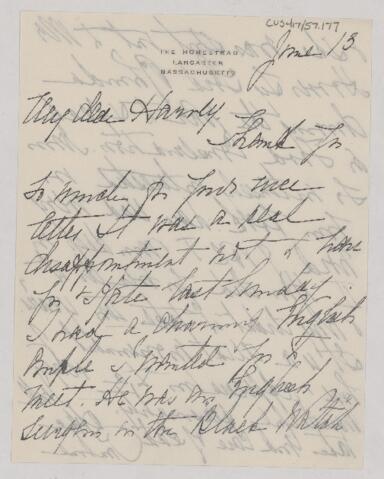 CUS417/57.177
THE HOMESTEAD
LANCASTER
MASSACHUSETTS
June 13
My dear Harvey
Thank you
so much for your nice
letter it was a real
disappointment not to have
you & Kate last Sunday.
I had a charming English
couple I wanted you to
meet. He was an English
surgeon in the Black Watch